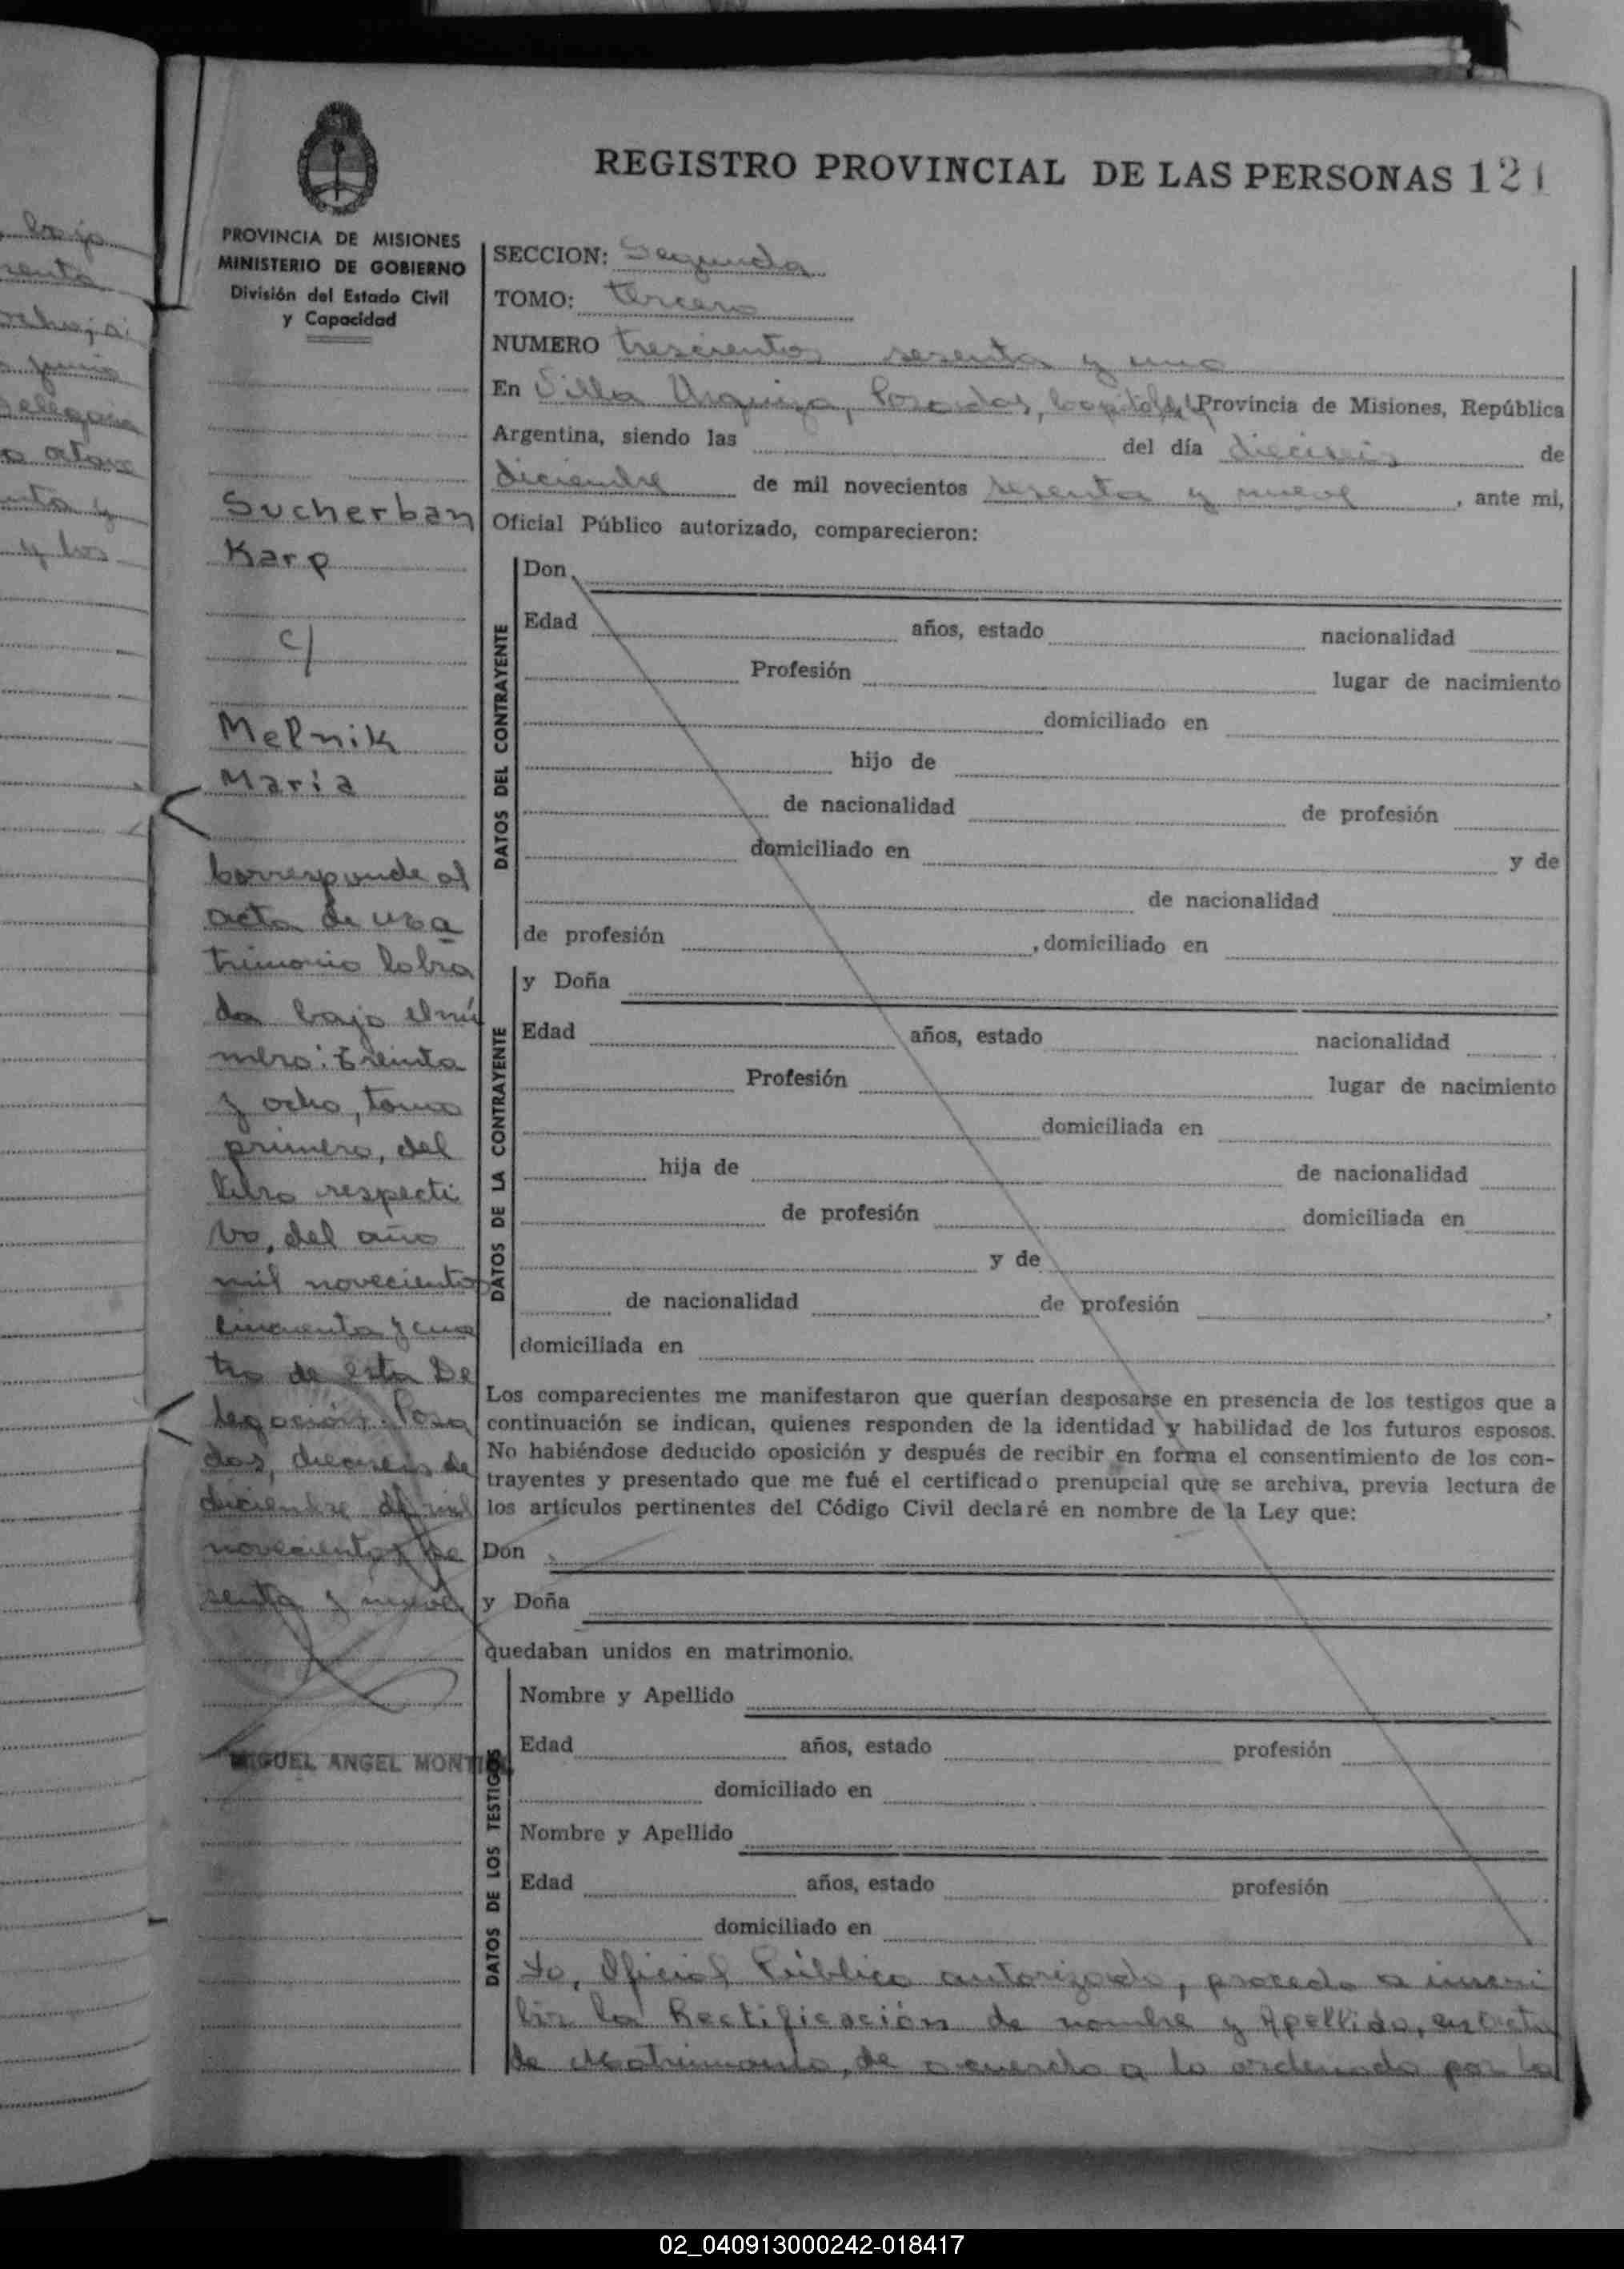 REGISTRO PROVINCIAL DE LAS PERSONAS 121
PROVINCIA DE MISIONES
MINISTERIO DE GOBIERNO
División del Estado Civil
y Capacidad
Sucherban
Karp
c/
Melnik
Maria
Corresponde al
acta de ma
trimonio labra
da bajo el nú
mero: treinta
y ocho, tomo
primero, del
libro respecti
vo, del año
mil novecientos
cincuenta y cua
tro de esta De
legación. Posa
das, dieciseis de
diciembre de mil
novecientos se
senta y nueve
MIGUEL ANGEL MONTIEL
SECCION: Segunda
TOMO: tercero
NUMERO trescientos sesenta y uno
En Villa Urquiza, Posadas, Capital de la Provincia de Misiones, República
Argentina, siendo las del día dieciseis de
diciembre de mil novecientos sesenta y nueve, ante mi,
Oficial Público autorizado, comparecieron:
DATOS DEL CONTRAYENTE
Don
Edad años, estado nacionalidad
Profesión lugar de nacimiento
domiciliado en
hijo de
de nacionalidad de profesión
domiciliado en y de
de nacionalidad
de profesión , domiciliado en
DATOS DE LA CONTRAYENTE
y Doña
Edad años, estado nacionalidad
Profesión lugar de nacimiento
domiciliada en
hija de de nacionalidad
de profesión domiciliada en
y de
de nacionalidad de profesión ,
domiciliada en
Los comparecientes me manifestaron que querían desposarse en presencia de los testigos que a
continuación se indican, quienes responden de la identidad y habilidad de los futuros esposos.
No habiéndose deducido oposición y después de recibir en forma el consentimiento de los con-
trayentes y presentado que me fué el certificado prenupcial que se archiva, previa lectura de
los artículos pertinentes del Código Civil declaré en nombre de la Ley que:
Don
y Doña
quedaban unidos en matrimonio.
DATOS DE LOS TESTIGOS
Nombre y Apellido
Edad años, estado profesión
domiciliado en
Nombre y Apellido
Edad años, estado profesión
domiciliado en
Yo, Oficial Público autorizado, procedo a inscri
bir la Rectificación de nombre y Apellido, en Acta
de Matrimonio, de acuerdo a lo ordenado por la
02_040913000242-018417